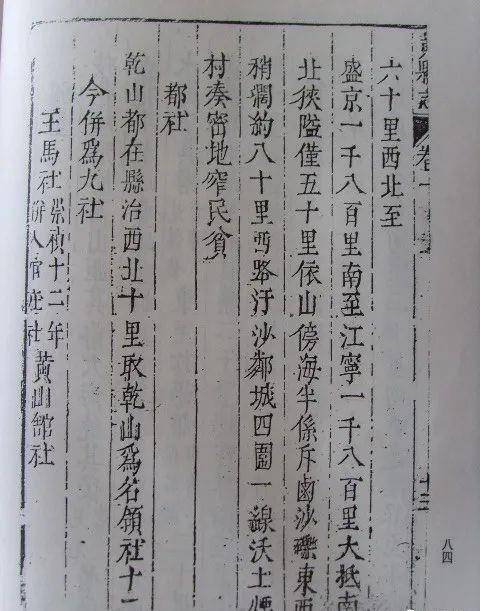 縣志 卷一
八四
六十里西北至
盛京一千八百里南至江寧一千八百里大抵南
北狹隘僅五十里依山傍海半係斥鹵沙礫東西
稍濶約八十里西路汙沙鄰城四圍一線沃土煙
村湊密地窄民貧
都社
乾山都在縣治西北十里取乾山爲名領社十
今併爲九社
王馬社崇禎十二年併入官庄社黃山館社